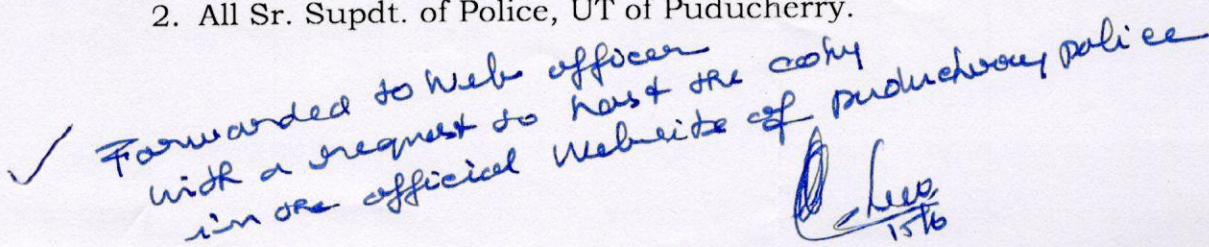 2. All Sr. Supdt. of Police, UT of Puducherry.
✓ Forwarded to Web officer
with a request to host the copy
in the official Website of puducherry police
15/6